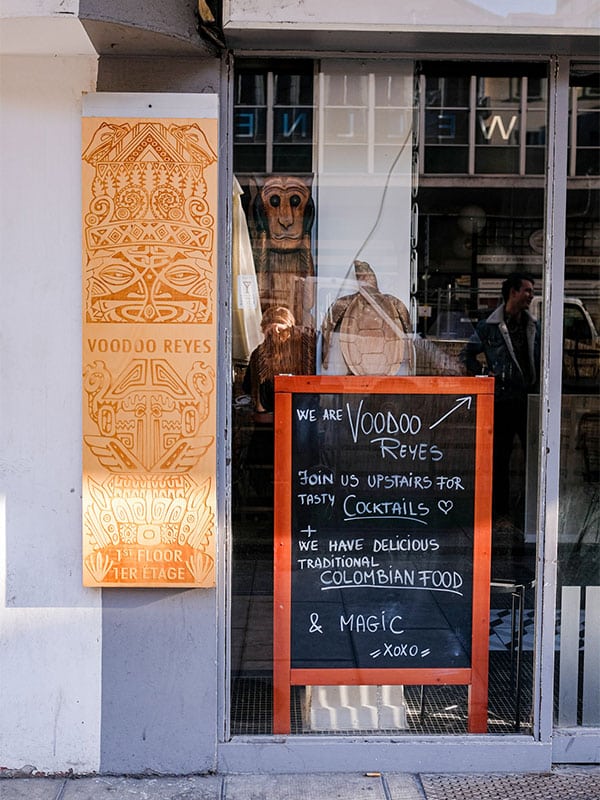 VOODOO REYES
1ST FLOOR
1ER ÉTAGE
WE ARE VOODOO
REYES
JOIN US UPSTAIRS FOR
TASTY COCKTAILS ♡
+
WE HAVE DELICIOUS
TRADITIONAL
COLOMBIAN FOOD
& MAGIC
=XOXO=